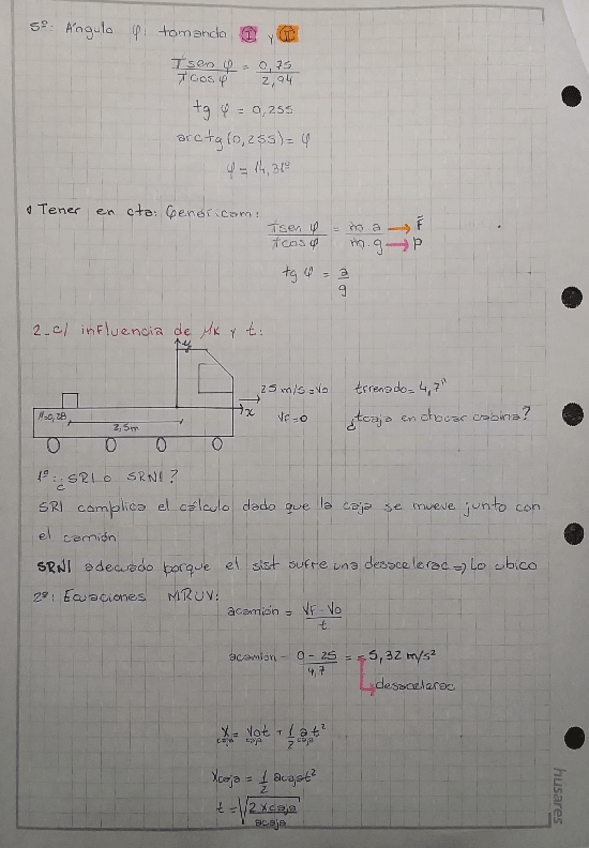 5º: Ángulo φ: tomando I y II
Tsen φ / Tcos φ = 0,75 / 2,94
tg φ = 0,255
arctg(0,255) = φ
φ = 14,31º
Tener en cta: Genéricam:
Tsen φ / Tcos φ = m.a / m.g → F → P
tg φ = a / g
2_c/ influencia de μk y t:
y
25 m/s = Vo
tfrenado = 4,7"
x
M=0,28
2,5m
Vf = 0
¿tcaja en chocar cabina?
1º: ¿SRI o SRNI?
SRI complica el cálculo dado que la caja se mueve junto con
el camión
SRNI adecuado porque el sist sufre una desacelerac → Lo ubico
2º: Ecuaciones MRUV:
acamión = Vf - Vo / t
acamion = 0 - 25 / 4,7 = -5,32 m/s²
desacelerac
xcaja = Vocaja t + 1/2 acaja t²
xcaja = 1/2 acaja t²
t = √2 xcaja / acaja
husares